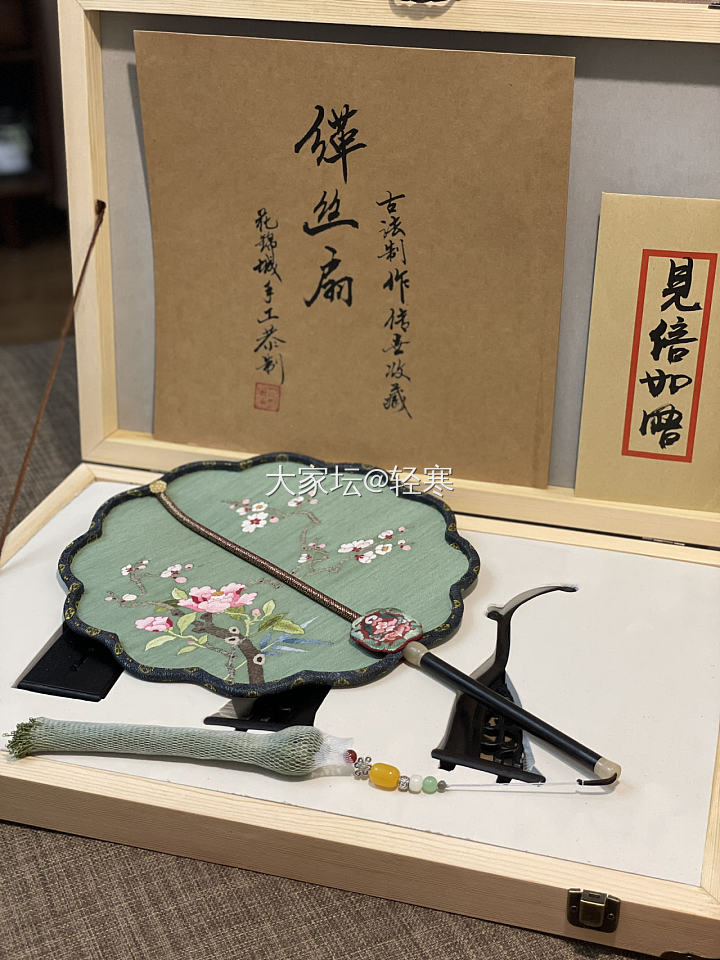 古法制作传世收藏
缂丝扇
花锦城手工恭制
見信如晤
大家坛@轻寒